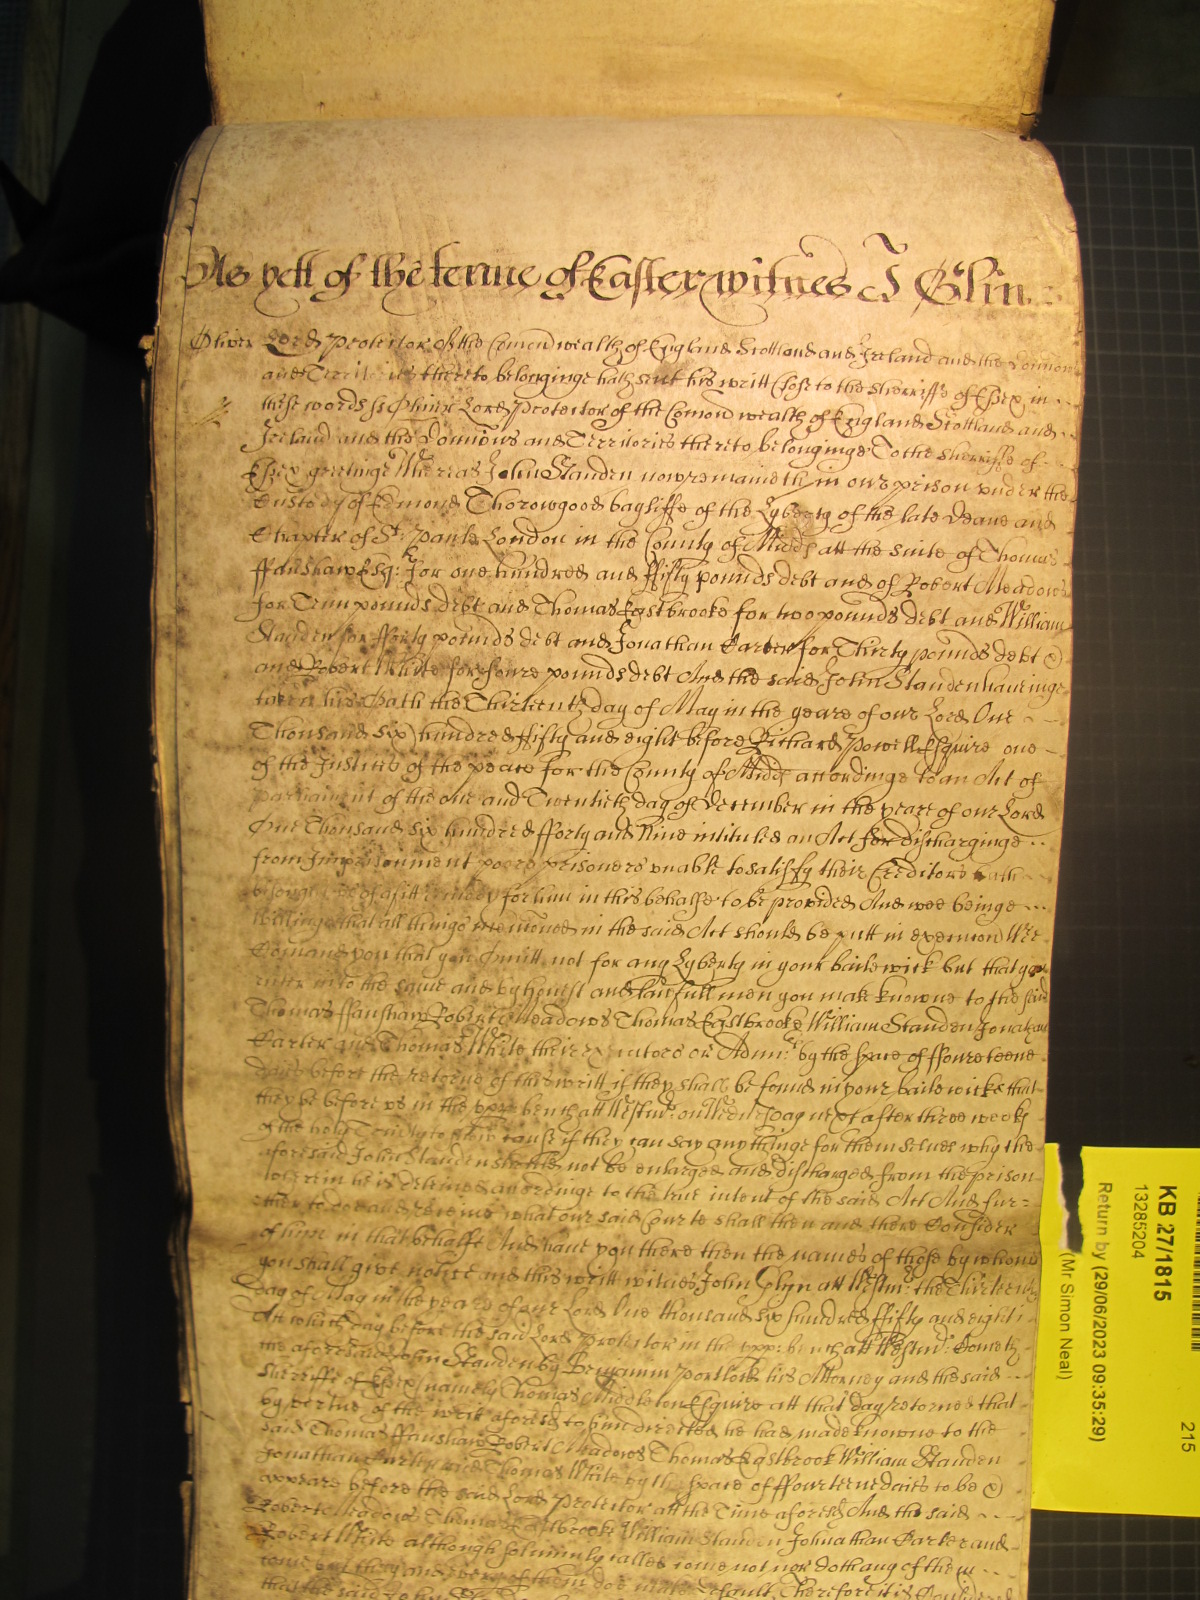 As yett of the terme of Easter witnes J Glin
Oliver Lord Protector of the Comonwealth of England Scotland and Ireland and the Dominions
and Territories thereto belonginge hath sent his writt close to the Sherriffe of Essex in
these words ss Oliver Lord Protector of the Comonwealth of England Scotland and
Ireland and the Dominions and Territories thereto belonginge To the Sherriffe of
Essex greetinge Whereas John Standen now remaineth in our prison under the
Custody of Edmond Thorowgood bayliffe of the Lyberty of the late Deane and
Chapter of St: Pauls London in the County of Midd att the suite of Thomas
ffanshaw Esq: for one hundred and ffifty pounds debt and of Robert Meadows
for Tenn pounds debt and Thomas Eastbrooke for two pounds debt and William
Standen for fforty pounds debt and Jonathan Carter for Thirty pounds debt
and Robert White for ffoure pounds debt And the said John Standen haveinge
taken his Oath the Thirteenth day of May in the yeare of our Lord One
Thousand six hundred ffifty and eight before Richard Powell Esquire one
of the Justices of the peace for the County of Midd accordinge to an Act of
parliament of the one and Twentieth day of December in the yeare of our Lord
One Thousand six hundred fforty and Nine intituled an Act for discharginge
from Imprisonment poore prisoners unable to satisfy their Creditors hath
besought us of a fitt remedy for him in this behalfe to be provided And wee beinge
willinge that all things menconed in the said Act should be putt in execucon Wee
Comand you that you Omitt not for any Lyberty in your bailewick but that you
enter into the same and by honest and lawfull men you make knowne to the said
Thomas ffanshaw Robert Meadows Thomas Eastbrooke William Standen Jonathan
Carter and Thomas White their Executors or Admrs by the space of ffoureteene
daies before the retorne of this writt if they shall be found in your bailewicke that
they be before us in the upper bench att Westmr: on Wednesday next after three weeks
of the holy Trinity to shew cause if they can say any thinge for themselves why the
aforesaid John Standen should not be enlarged and discharged from the prison
wherein he is deteined accordinge to the true intent of the said Act And fur=
ther to doe and receive what our said Courte shall then and there Consider
of him in that behalfe And have you there then the names of those by whom
you shall give notice and this writt witnes John Glyn att Westmr: the Thirteenth
day of May in the yeare of our Lord One thousand six hundred ffifty and eight
Att which day before the said Lord Protector in the upp: bench att Westmr: Cometh
the aforesaid John Standen by Benjamin Portlock his Attorney and the said
Sherriffe of Essex namely Thomas Middleton Esquire att that day retorned that
by vertue of the writt aforesd to him directed he had made knowne to the
said Thomas ffanshaw Robert Meadows Thomas Eastbrook William Standen
Jonathan Carter and Thomas White by the space of ffourteene daies to be
appeare before the said Lord Protector att the Time aforesd And the said
Robert Meadows Thomas Eastbrooke William Standen Johnathan Carter and
Robert White although solemnly called come not nor doth any of them
come but they and every of them doe make default Therefore it is Considered
that the said John
KB 27/1815
13285204
Return by (29/06/2023 09:35:29)
(Mr Simon Neal)
215